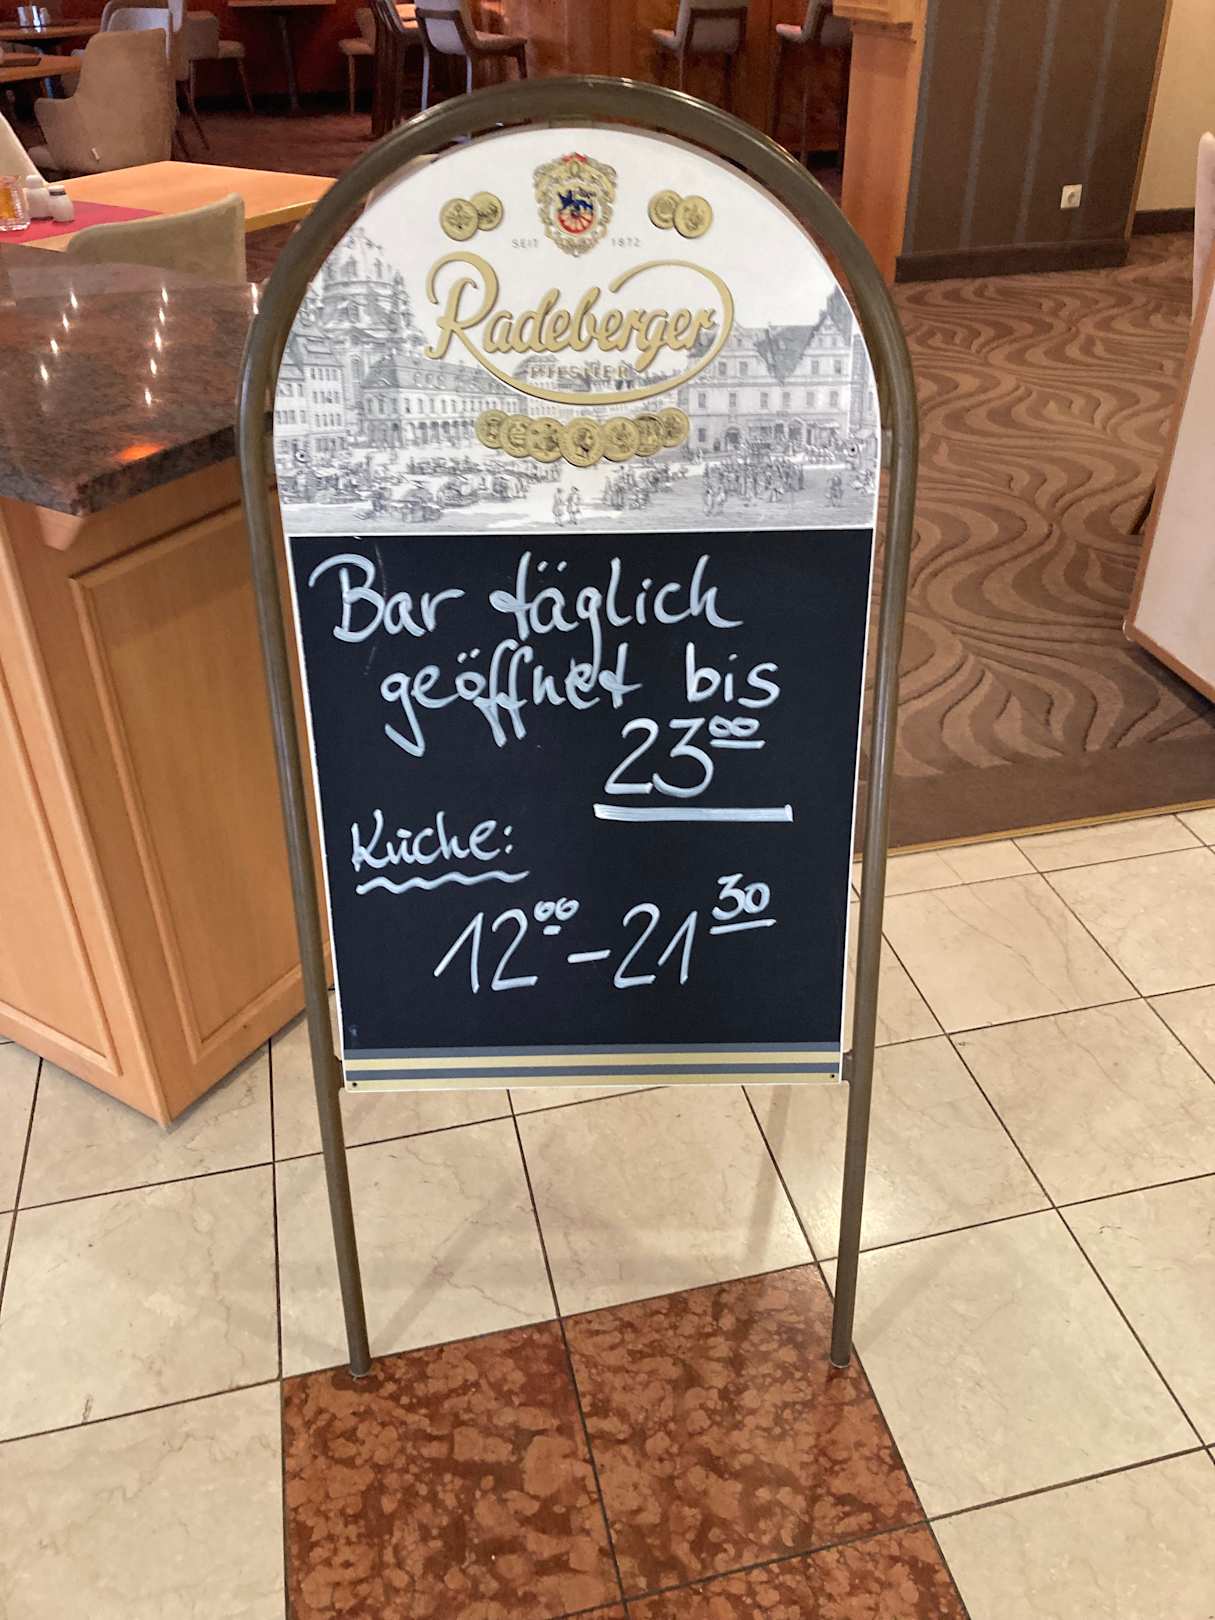 SEIT 1872
Radeberger
PILSNER
Bar täglich
geöffnet bis
23⁰⁰
Küche:
12⁰⁰-21³⁰